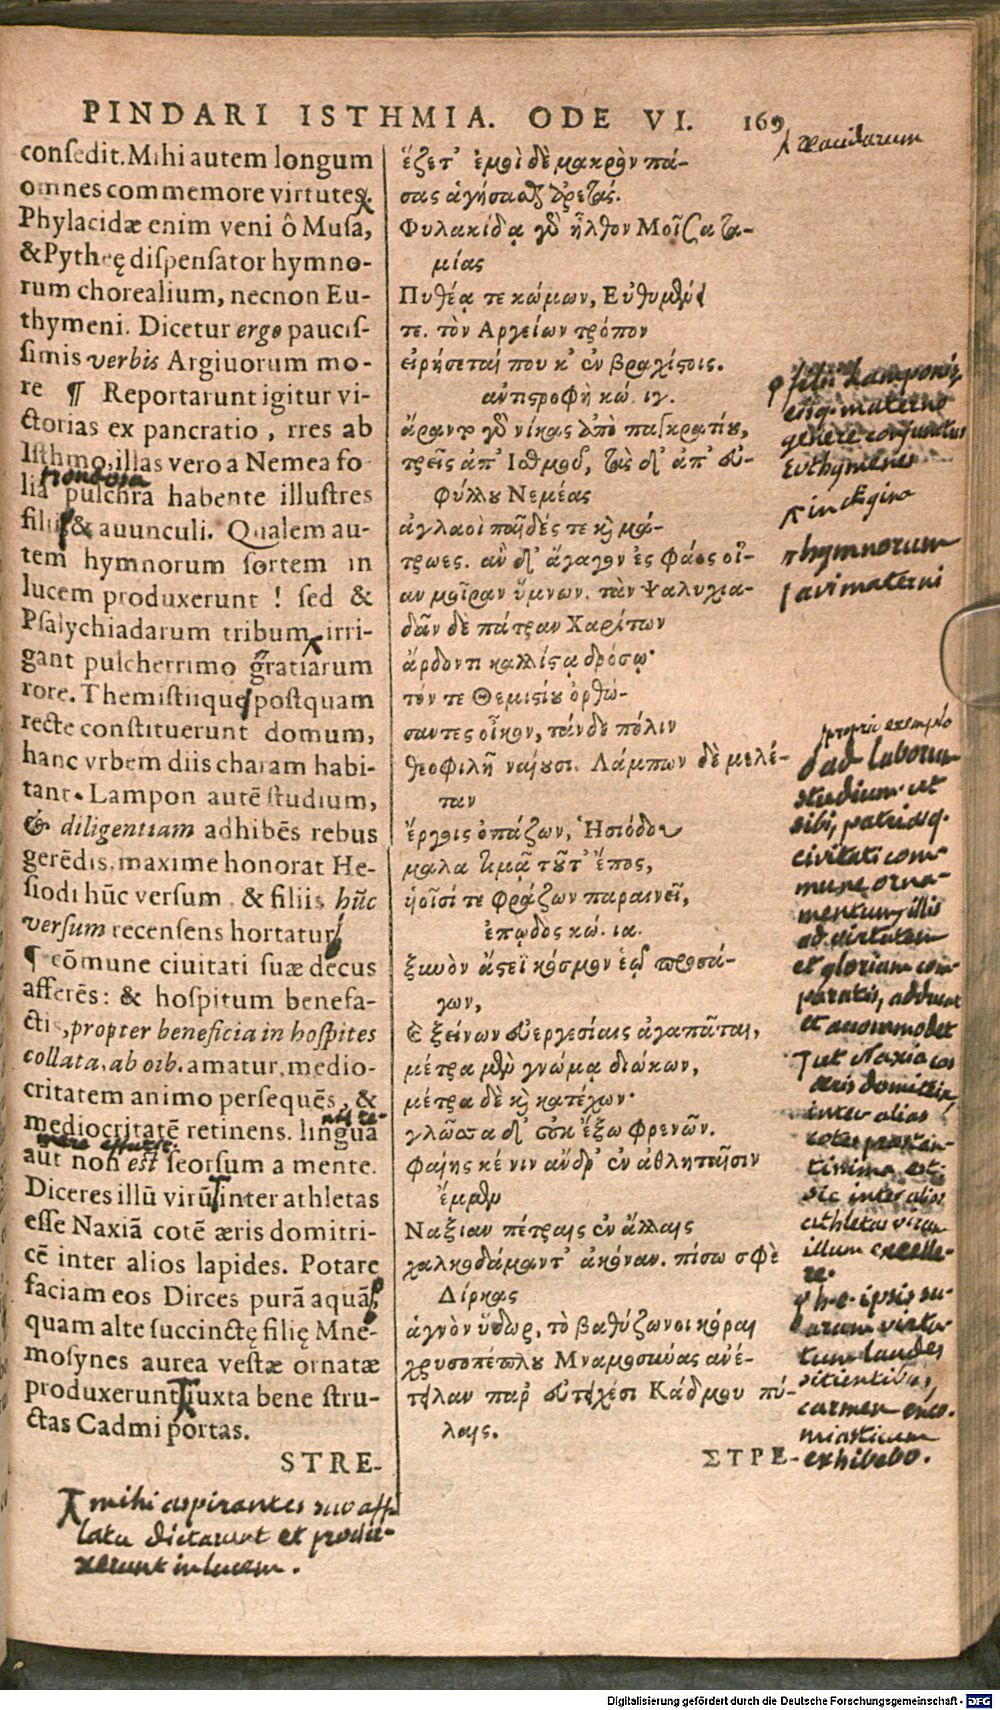 PINDARI ISTHMIA. ODE VI. 169
consedit. Mihi autem longum
omnes commemore virtutes.
Phylacidæ enim veni ô Musa,
& Pytheę dispensator hymno-
rum chorealium, necnon Eu-
thymeni. Dicetur ergo paucis-
simis verbis Argiuorum mo-
re ¶ Reportarunt igitur vi-
ctorias ex pancratio, rres ab
Isthmo, illas vero a Nemea fo
frondosa
lia pulchra habente illustres
filii & auunculi. Qualem au-
tem hymnorum sortem in
lucem produxerunt ! sed &
Psalychiadarum tribum irri-
gant pulcherrimo gratiarum
rore. Themistiique postquam
recte constituerunt domum,
hanc vrbem diis charam habi-
tant. Lampon autē studium,
& diligentiam adhibēs rebus
gerēdis, maxime honorat He-
siodi hūc versum, & filiis hūc
versum recensens hortatur
¶ cōmune ciuitati suæ decus
afferēs: & hospitum benefa-
ctis, propter beneficia in hospites
collata, ab oib. amatur, medio-
critatem animo persequēs, &
mediocritatē retinens. lingua
aut non est seorsum a mente.
Diceres illū virū inter athletas
esse Naxiā cotē æris domitri-
cē inter alios lapides. Potare
faciam eos Dirces purā aquā,
quam alte succinctę filię Mne-
mosynes aurea vestæ ornatæ
produxerunt iuxta bene stru-
ctas Cadmi portas.
STRE-
mihi aspirantes suo aff-
latu dictarunt et produ-
xerunt in lucem.
ἕζετ' ἐμοὶ δὲ μακρὸν πά-
σας ἀγήσαςθ ἀρετάς.
Φυλακίδᾳ γὸ ἦλθον Μοῖσα τα-
μίας
Πυθέᾳ τε κώμων, Εὐθυμένει
τε. τὸν Αργείων τρόπον
εἰρήσεταί που κ' ἐν βραχίςοις.
ἀντιςροφὴ κώ. ιγ.
ἄραντο γὸ νίκας ἀπὸ παγκρατίου,
τρεῖς ἀπ' Ισθμοῦ, τὰς δ' ἀπ' εὐ-
φύλλου Νεμέας
ἀγλαοὶ παῖδές τε καὶ μά-
τρωες. ἀν δ' ἄγαγον ἐς φάος οἵ-
αν μοῖραν ὕμνων. τὰν Ψαλυχια-
δᾶν δὲ πάτραν Χαρίτων
ἄρδοντι καλλίςᾳ δρόσῳ·
τόν τε Θεμιςίου ὀρθώ-
σαντες οἶκον, τάνδε πόλιν
θεοφιλῆ ναίουσι. Λάμπων δὲ μελέ-
ταν
ἔργοις ὀπάζων, Ἡσιόδου
μαλα τιμᾷ τοῦτ' ἔπος,
ὑοῖσί τε φράζων παραινεῖ,
ἐπῳδὸς κώ. ια.
ξυνὸν ἄςεϊ κόσμον ἑῷ προσά-
γων,
Καὶ ξείνων εὐεργεσίαις ἀγαπᾶται,
μέτρα μὲν γνώμᾳ διώκων,
μέτρα δὲ καὶ κατέχων·
γλῶσσα δ' οὐκ ἔξω φρενῶν.
φαίης κέ νιν ἄνδρ' ἐν ἀθληταῖσιν
ἔμμεν
Ναξίαν πέτραις ἐν ἄλλαις
χαλκοδάμαντ' ἀκόναν. πίσω σφὲ
Δίρκας
ἁγνὸν ὕδωρ, τὸ βαθύζωνοι κόραι
χρυσοπέπλου Μναμοσύνας ἀνέ-
τειλαν παρ' εὐτειχέσι Κάδμου πύ-
λαις.
ΣΤΡΕ-
Æacidarum
filii Lamponis,
eiusq. materno
genere conjunctus
Euthymenes
in Ægina
hymnorum
avi materni
proprio exemplo
ad laborum
studium, ut
sibi, patriæq.
civitati com-
mune orna-
mentum, illis
ad virtutem
et gloriam com-
paratis, adducat
et accommodet
ut Naxia cos
æris domitrix
inter alias
cotes præstan-
tissima est:
sic inter alios
athletas virum
illum excelle-
re.
h. e. ipsis su-
arum virtu-
tum laudes
sitientibus,
carmen enco-
miasticum
exhibebo.